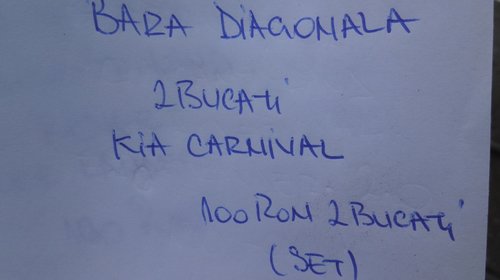 BARA DIAGONALA
2 BUCATI
KIA CARNIVAL
100 RON 2 BUCATI
(SET)